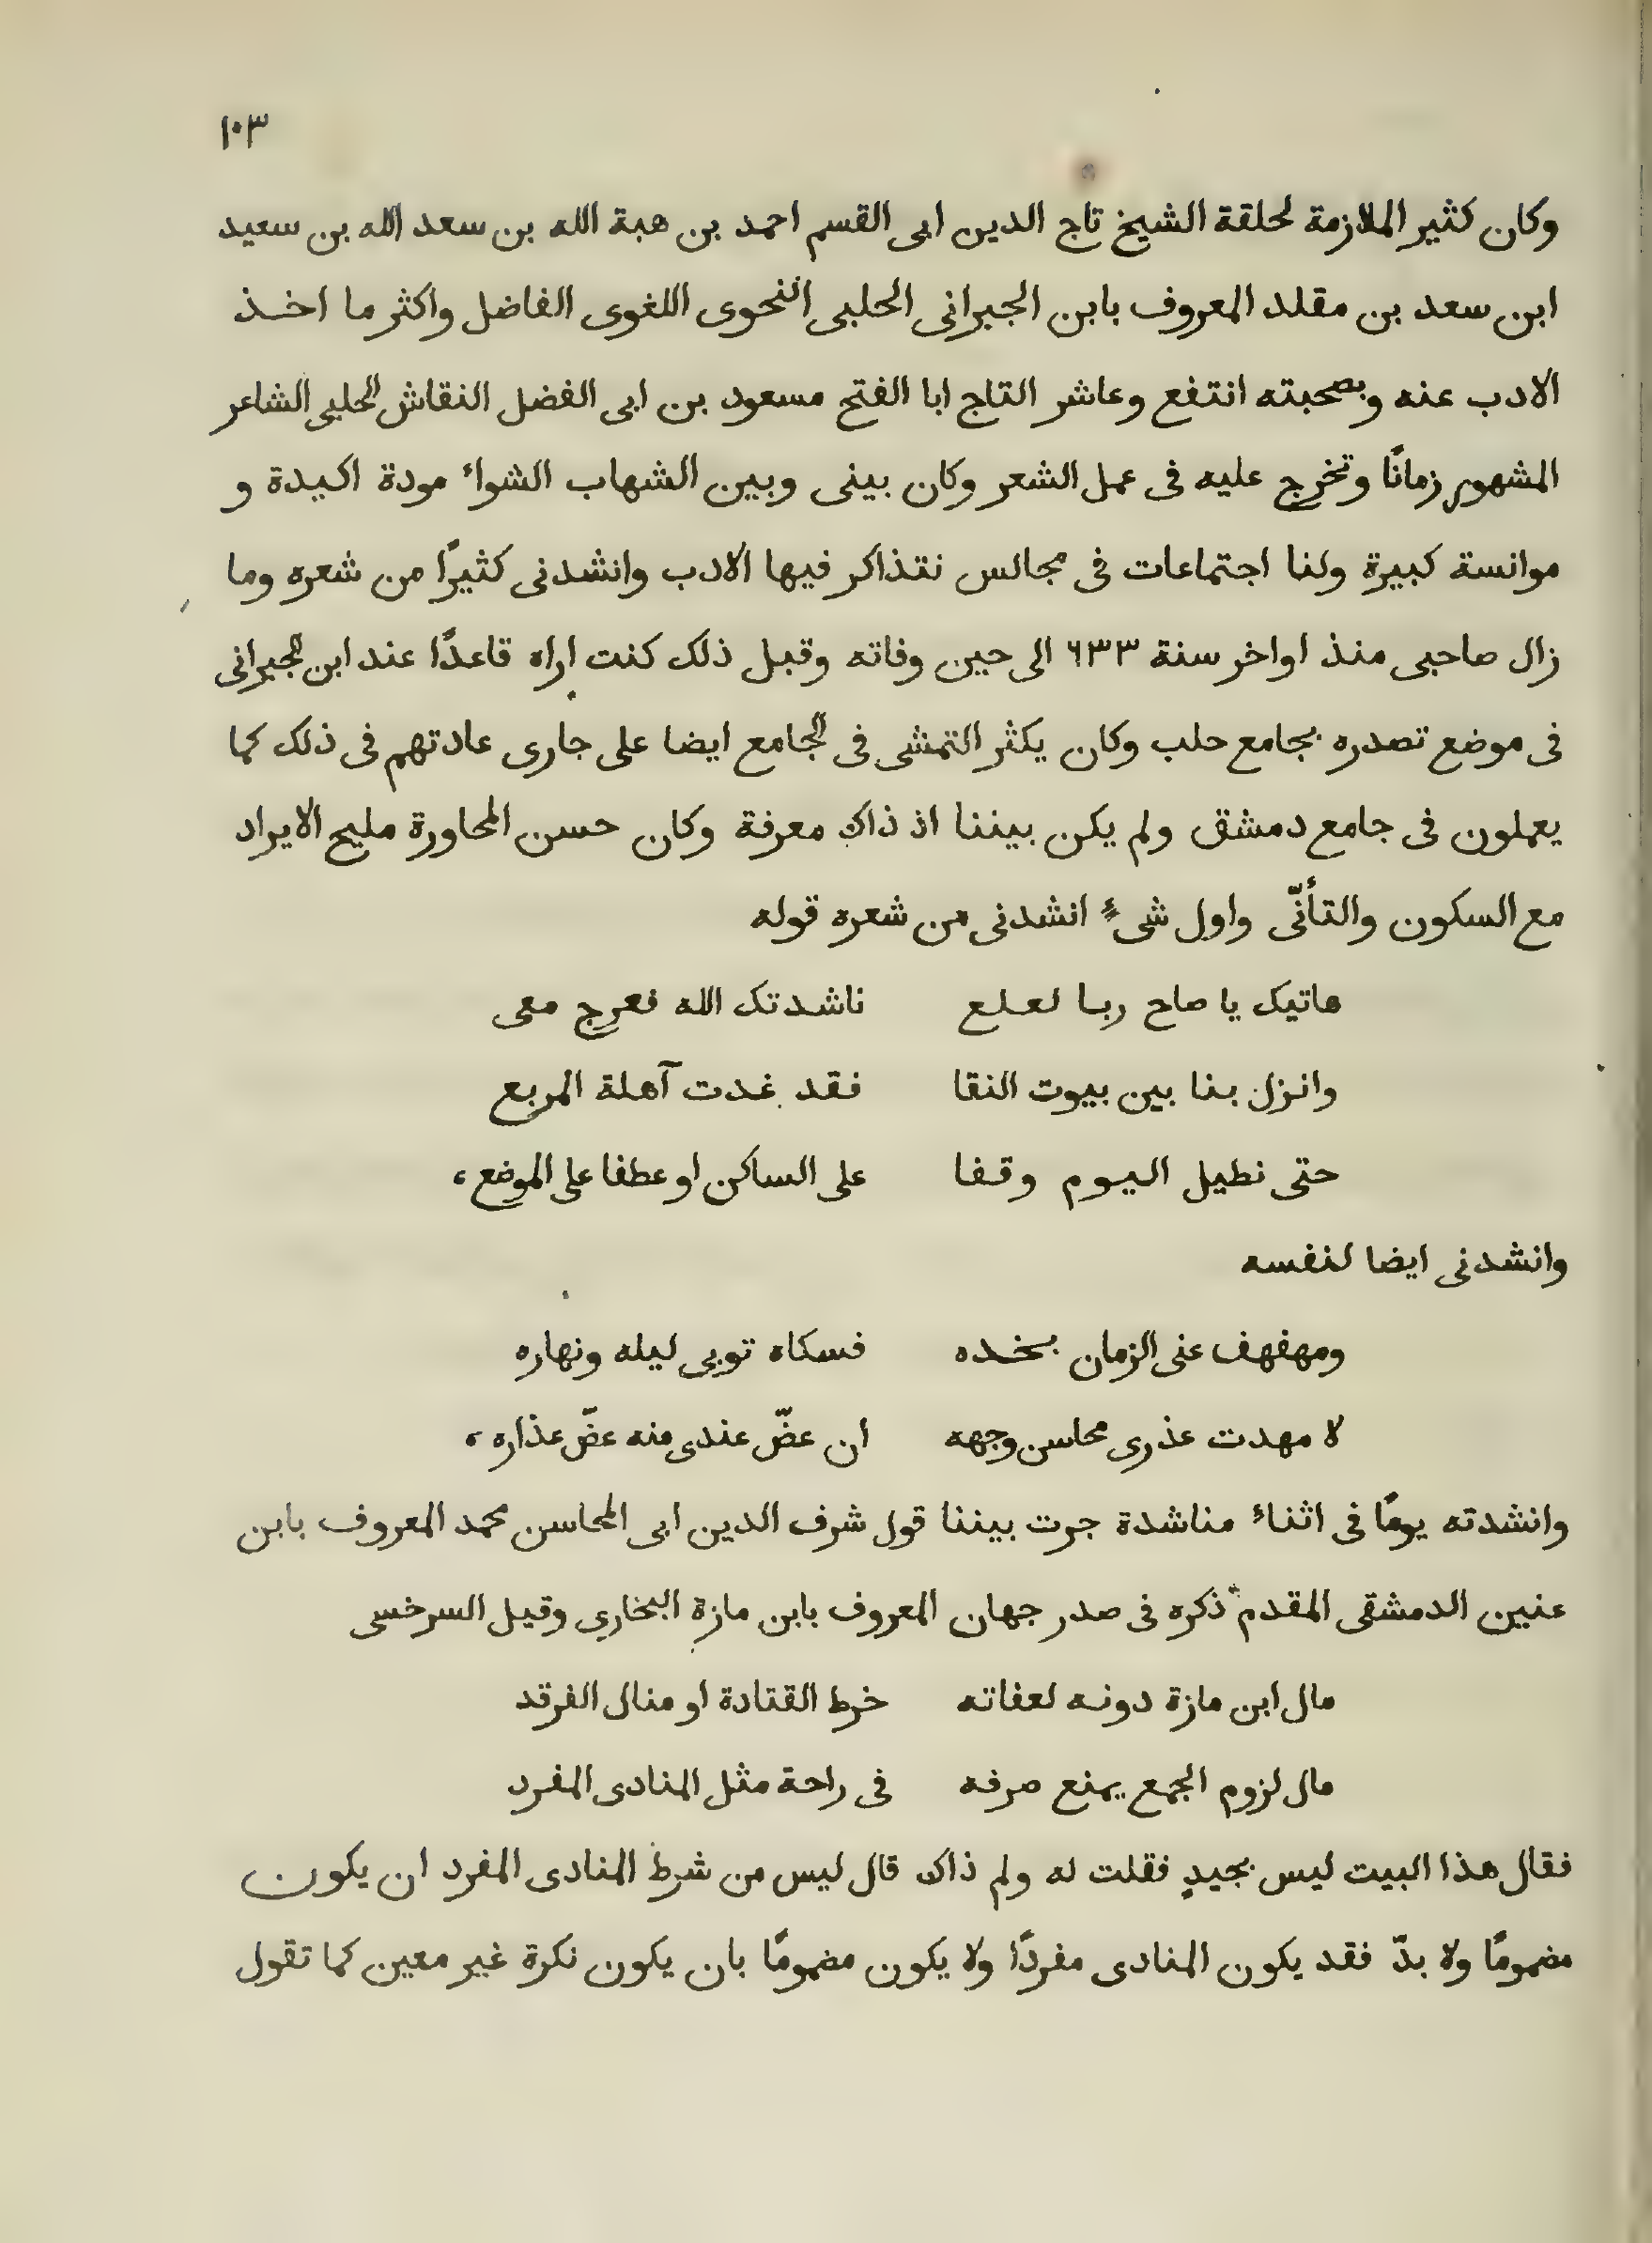 ١٠٣
وكان كثير الملازمة لحلقة الشيخ تاج الدين ابى القسم احمد بن هبة الله بن سعد الله بن سعيد
ابن سعد بن مقلد المعروف بابن الجبرانى الحلبى النحوى اللغوى الفاضل واكثر ما اخذ
الادب عنه وبصحبته انتفع وعاشر التاج ابا الفتح مسعود بن ابى الفضل النقاش الحلبى الشاعر
المشهور زمانًا وتخرج عليه فى عمل الشعر وكان بينى وبين الشهاب الشواء مودة اكيدة و
موانسة كبيرة ولنا اجتماعات فى مجالس نتذاكر فيها الادب وانشدنى كثيرًا من شعره وما
زال صاحبى منذ اواخر سنة ٦٣٣ الى حين وفاته وقبل ذلك كنت اراه قاعدًا عند ابن الجبرانى
فى موضع تصدره بجامع حلب وكان يكثر التمشى فى الجامع ايضا على جارى عادتهم فى ذلك كما
يعملون فى جامع دمشق ولم يكن بيننا اذ ذاك معرفة وكان حسن المحاورة مليح الايراد
مع السكون والتأنّى واول شىء انشدنى من شعره قوله
هاتيك يا صاح ربا لعلع ناشدتك الله فعرج معى
وانزل بنا بين بيوت النقا فقد غدت آهلة المربع
حتى نطيل اليوم وقفا على الساكن او عطفا على الموضع،
وانشدنى ايضا لنفسه
ومهفهف عنى الزمان بخده فسكاه توبى ليله ونهاره
لا مهدت عذرى محاسن وجهه ان عضّ عندى منه عضّ عذاره،
وانشدته يومًا فى اثناء مناشدة جرت بيننا قول شرف الدين ابى المحاسن محمد المعروف بابن
عنين الدمشقى المقدم ذكره فى صدر جهان المعروف بابن مازة البخاري وقيل السرخسى
مال ابن مازة دونه لعفاته خرط القتادة او منال الفرقد
مال لزوم الجمع يمنع صرفه فى راحة مثل المنادى المفرد
فقال هذا البيت ليس بجيدٍ فقلت له ولم ذاك قال ليس من شرط المنادى المفرد ان يكون
مضمومًا ولا بدّ فقد يكون المنادى مفردًا ولا يكون مضمومًا بان يكون نكرة غير معين كما تقول